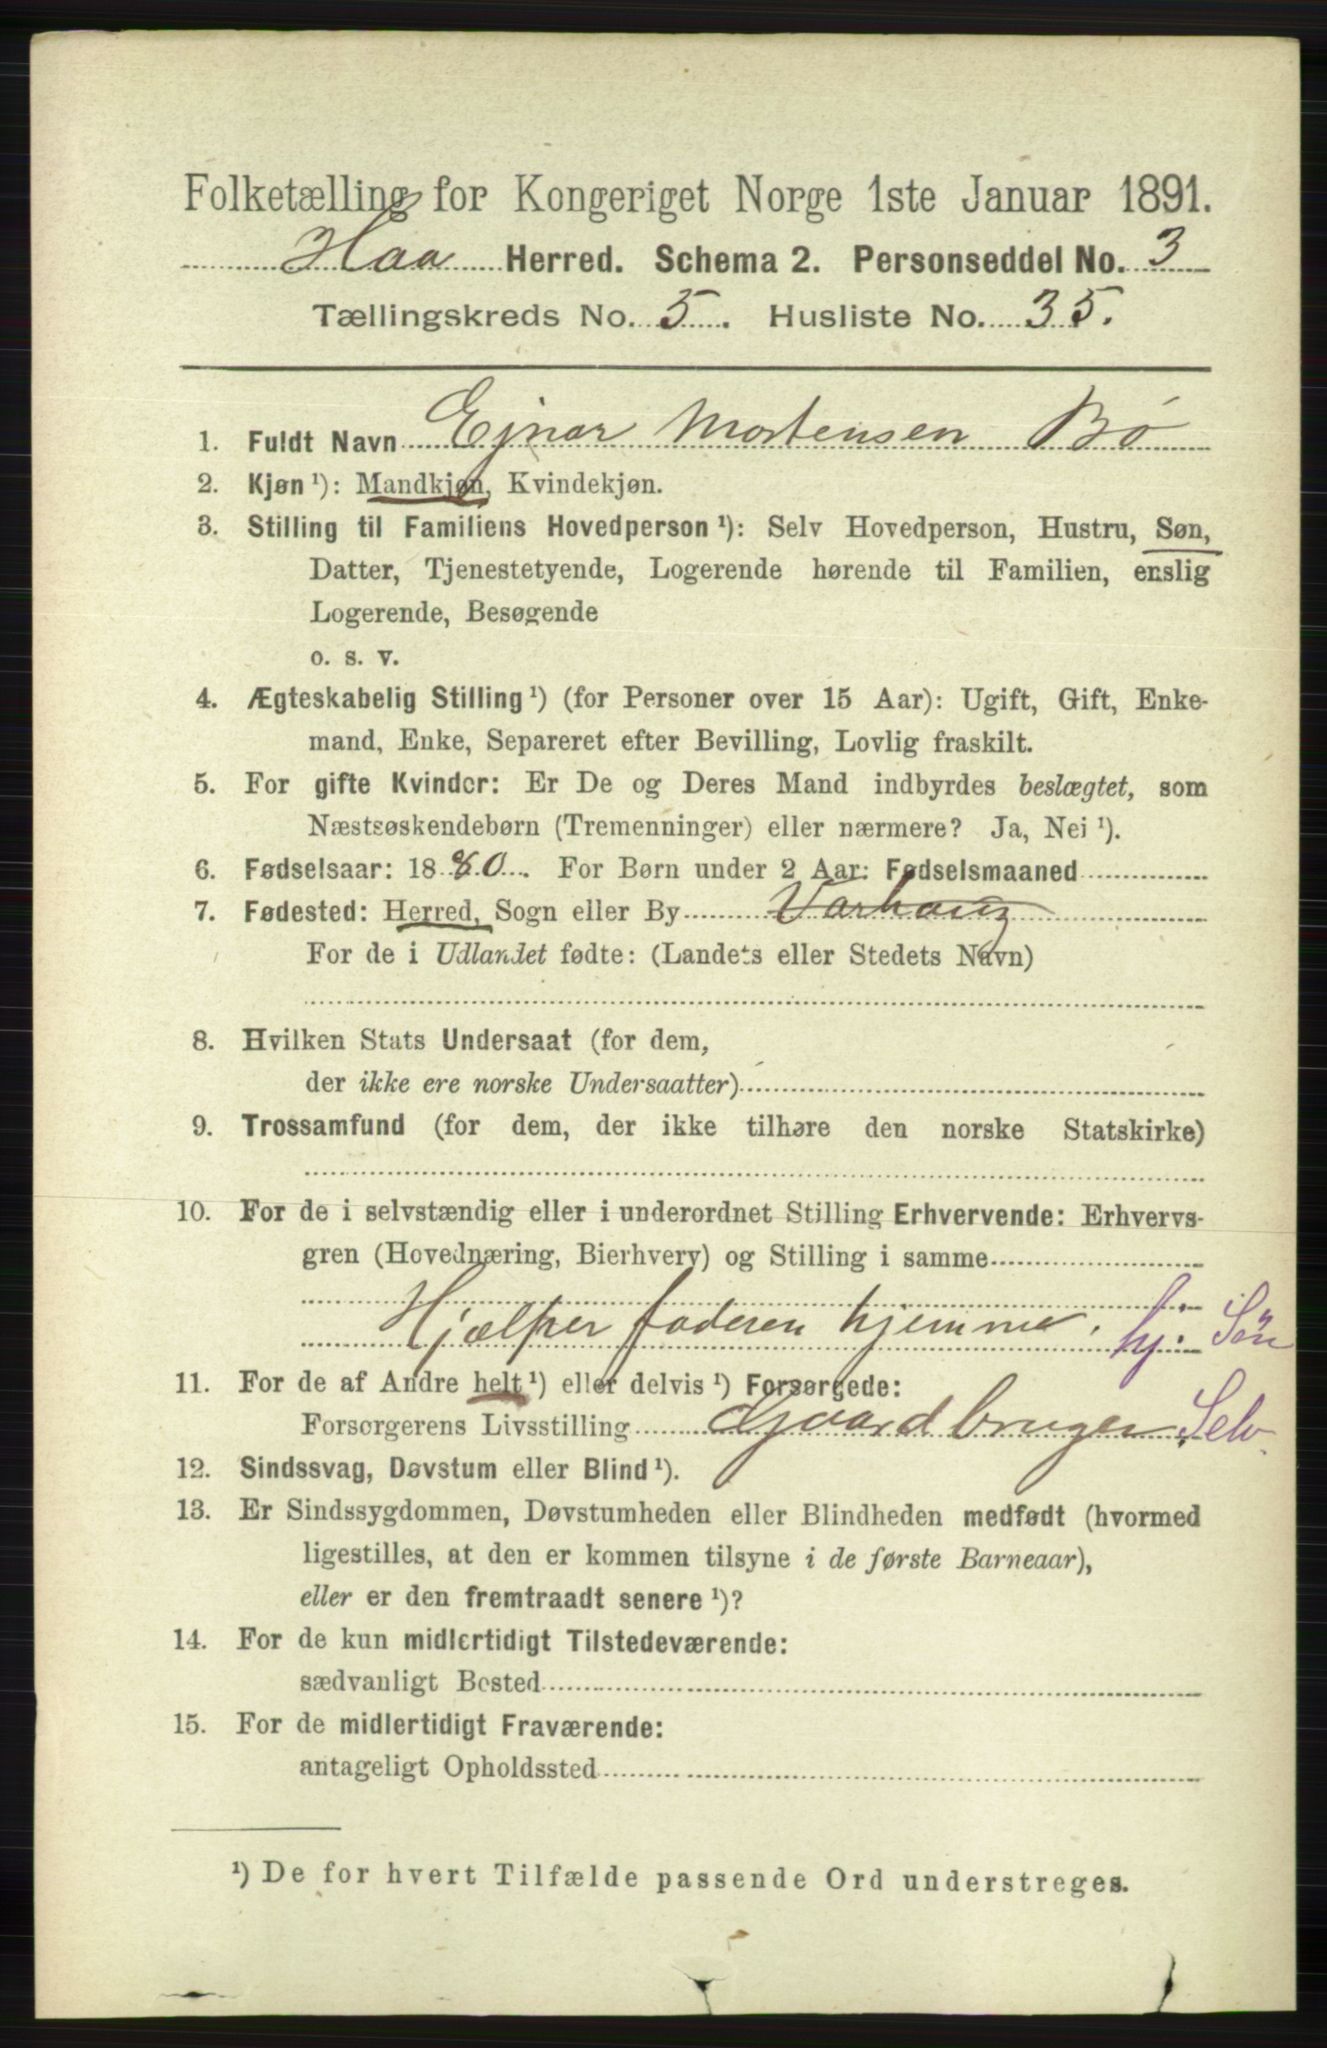 Folketælling for Kongeriget Norge 1ste Januar 1891.
Haa Herred. Schema 2. Personseddel No. 3
Tællingskreds No. 5. Husliste No. 35.
1. Fuldt Navn Ejnar Mortensen Bö
2. Kjøn ¹): Mandkjøn, Kvindekjøn.
3. Stilling til Familiens Hovedperson ¹): Selv Hovedperson, Hustru, Søn,
Datter, Tjenestetyende, Logerende hørende til Familien, enslig
Logerende, Besøgende
o. s. v.
4. Ægteskabelig Stilling ¹) (for Personer over 15 Aar): Ugift, Gift, Enke-
mand, Enke, Separeret efter Bevilling, Lovlig fraskilt.
5. For gifte Kvinder: Er De og Deres Mand indbyrdes beslægtet, som
Næstsøskendebørn (Tremenninger) eller nærmere? Ja, Nei ¹).
6. Fødselsaar: 1880. For Børn under 2 Aar: Fødselsmaaned
7. Fødested: Herred, Sogn eller By Varhaug
For de i Udlandet fødte: (Landets eller Stedets Navn)
8. Hvilken Stats Undersaat (for dem,
der ikke ere norske Undersaatter)
9. Trossamfund (for dem, der ikke tilhøre den norske Statskirke)
10. For de i selvstændig eller i underordnet Stilling Erhvervende: Erhvervs-
gren (Hovednæring, Bierhverv) og Stilling i samme
Hjælper faderen hjemme. hj. Sön
11. For de af Andre helt ¹) eller delvis ¹) Forsørgede:
Forsørgerens Livsstilling Gaardbruger Selv.
12. Sindssvag, Døvstum eller Blind ¹).
13. Er Sindssygdommen, Døvstumheden eller Blindheden medfødt (hvormed
ligestilles, at den er kommen tilsyne i de første Barneaar),
eller er den fremtraadt senere ¹)?
14. For de kun midlertidigt Tilstedeværende:
sædvanligt Bosted
15. For de midlertidigt Fraværende:
antageligt Opholdssted
¹) De for hvert Tilfælde passende Ord understreges.